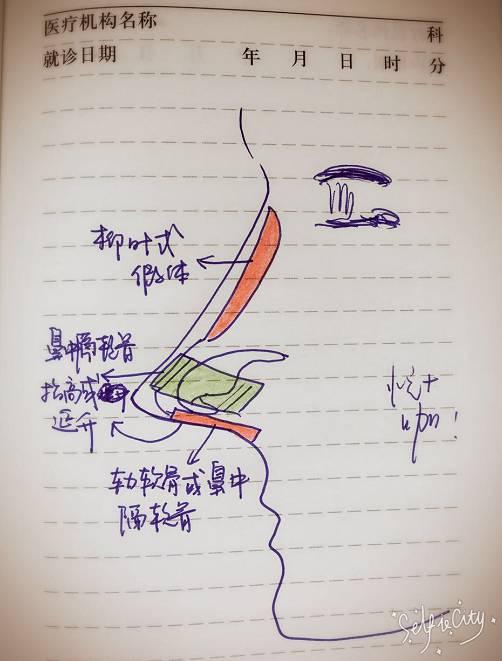 医疗机构名称 科
就诊日期 年 月 日 时 分
柳叶式
假体
鼻中隔软骨
抬高或
延升
软骨或鼻中
隔软骨
Self is City